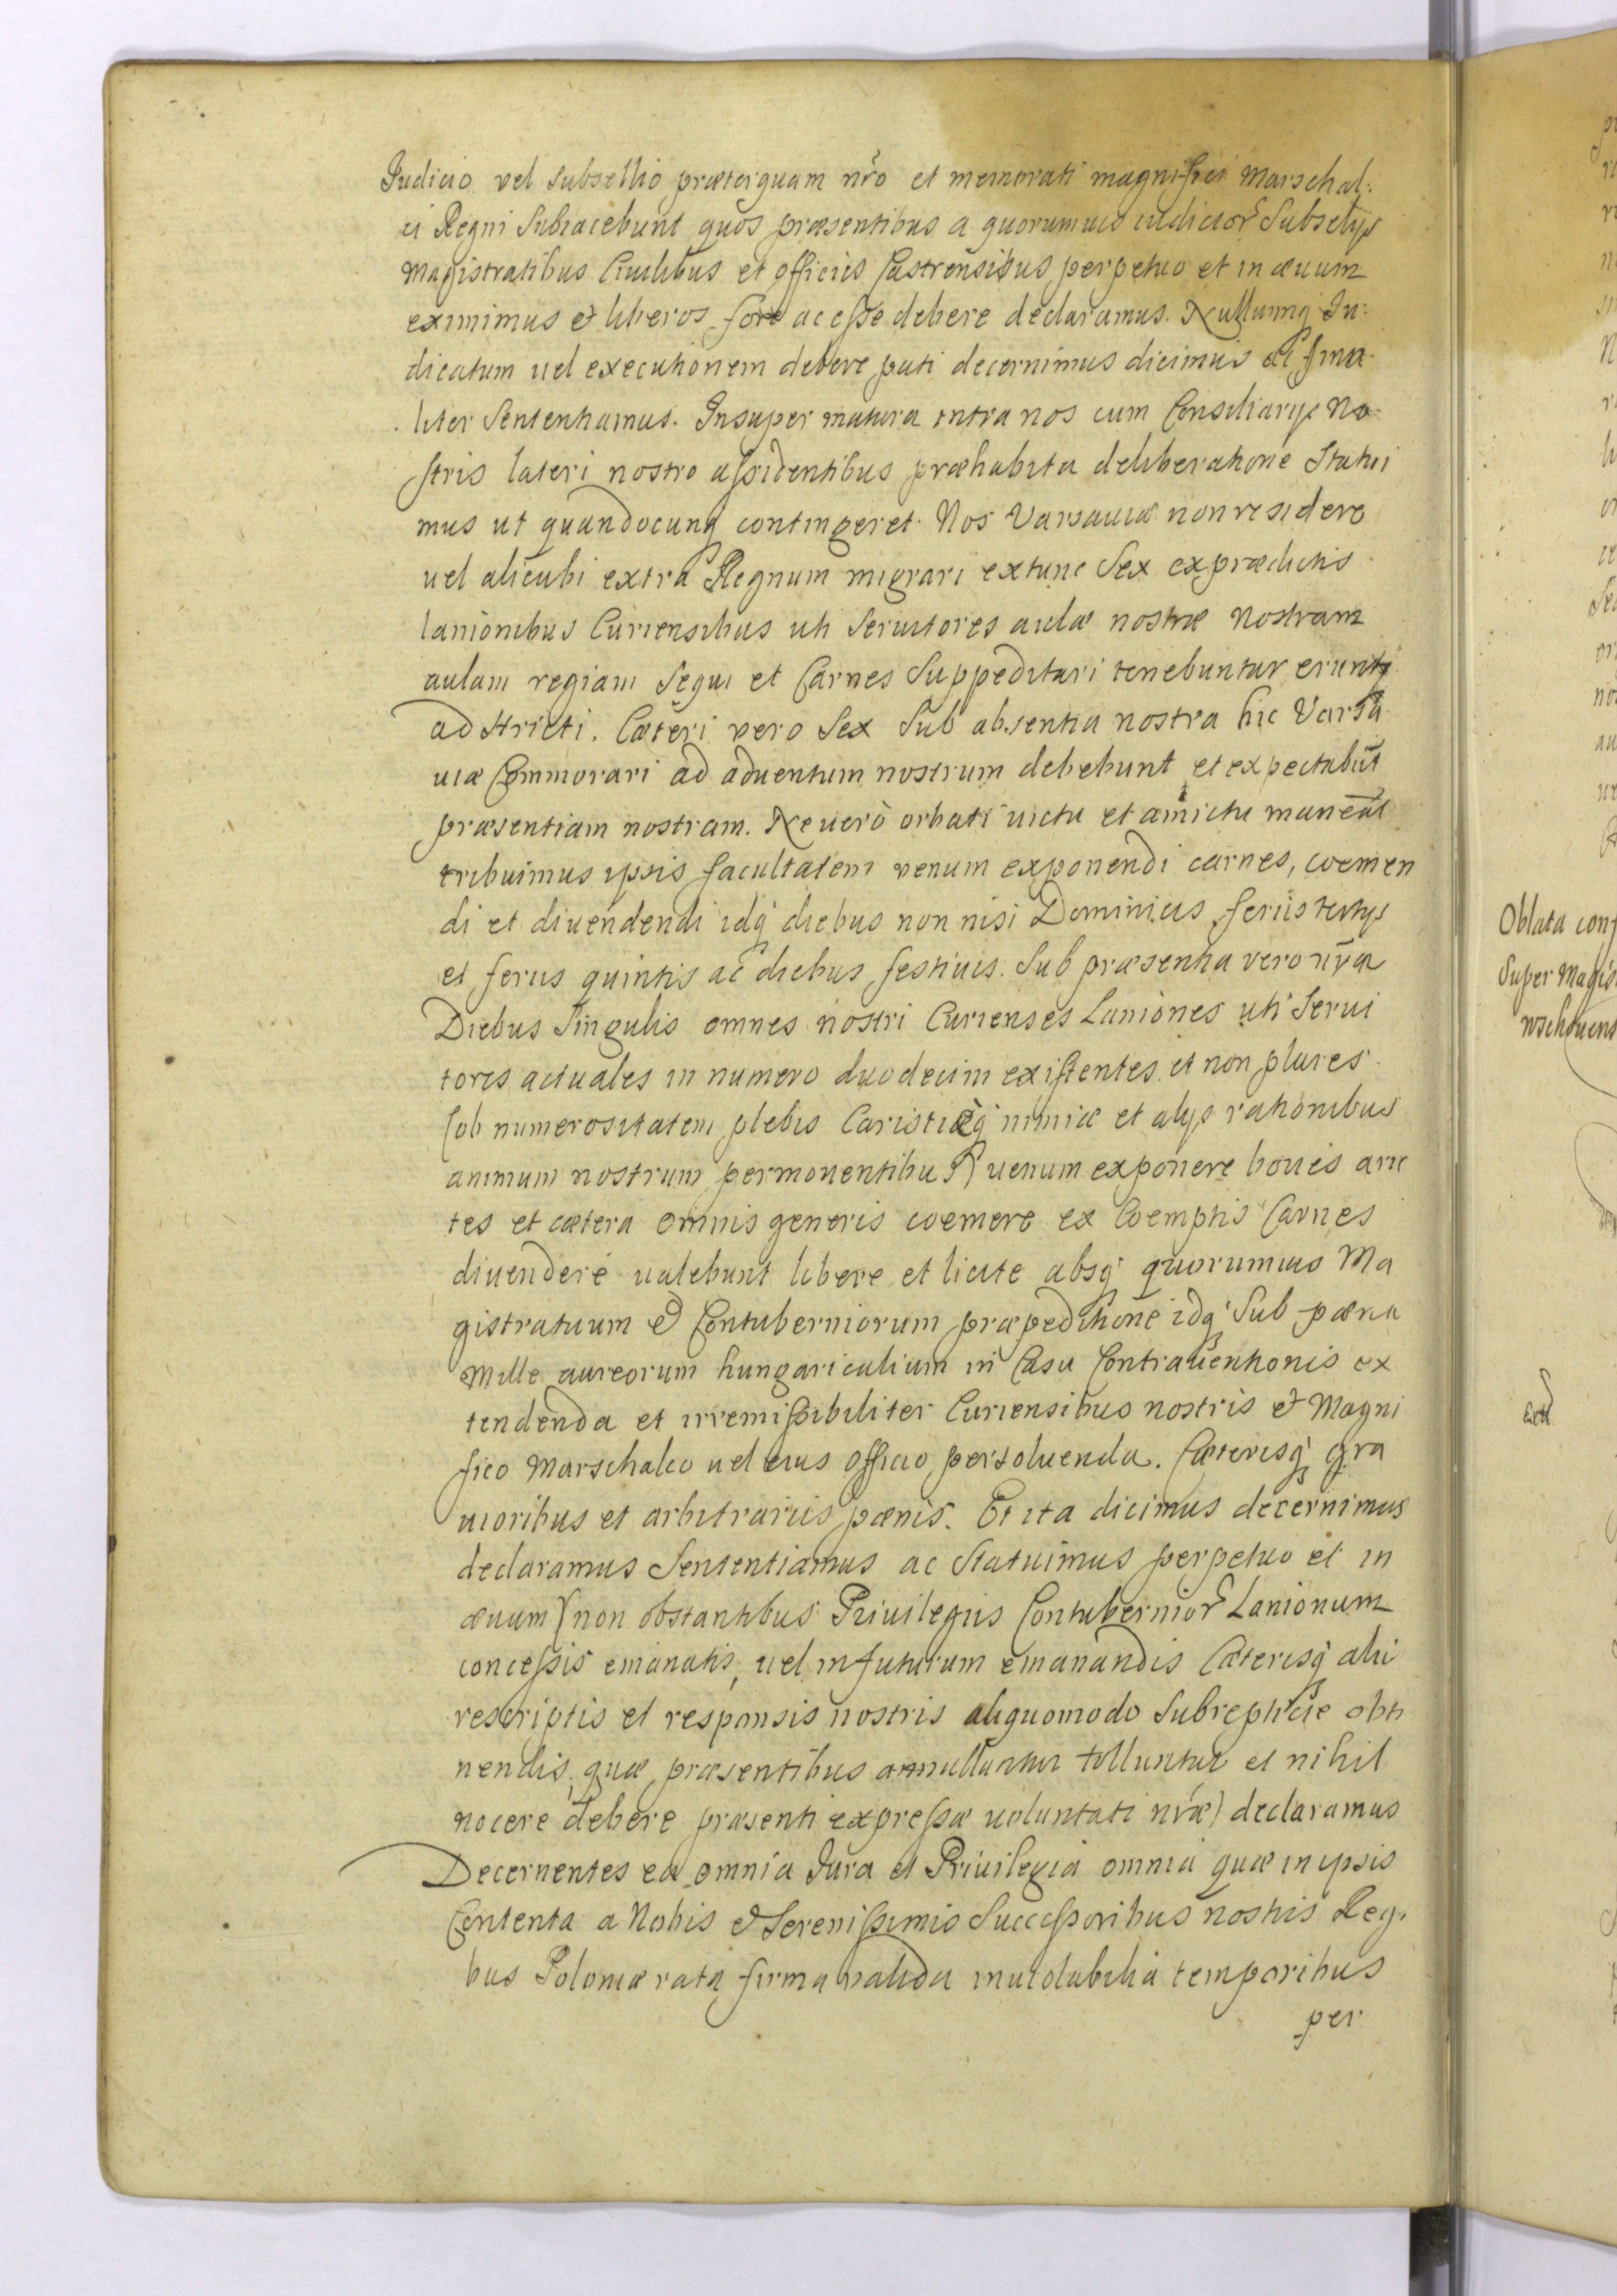 Judicio vel subsellio præterquam nr̃o et memorati magnifici Marschal:
ci Regni Subiacebunt quos præsentibus a quorumuis iudicior̃ Subselijs
Magistratibus Ciuilibus et officiis Castrensibus perpetuo et in æuum
eximimus et liberos fore ac esse debere declaramus. Nullumq Iu:
dicatum uel executionem debere pati decernimus dicimus ac fina
liter Sententiamus. Insuper matura intra nos cum Consiliarijs No
stris lateri nostro assidentibus præhabita deliberatione Statui
mus ut quandocunq contingeret Nos Varsauiæ non residere
uel alicubi extra Regnum migrari extunc Sex ex prædictis
lanionibus Curiensibus uti Seruitores aulæ nostræ Nostram
aulam regiam Sequi et Carnes Suppeditari tenebuntur eruntq
ad stricti. Cæteri vero Sex Sub absentia nostra hic Varsa
uiæ Commorari ad aduentum nostrum debebunt et expectabũt
præsentiam nostram. Ne uerò orbati uictu et amictu maneãt
tribuimus ipsis facultatem venum exponendi carnes, coemen
di et diuendendi idq diebus non nisi Dominicis feriis tertijs
et feriis quintis ac diebus festiuis. Sub præsentia vero nr̃a
Diebus Singulis omnes nostri Curienses Laniones uti Serui
tores actuales in numero duodecim existentes et non plures
(ob numerositatem plebis Caristiæq nimiæ et alijs rationibus
animum nostrum permonentibus) uenum exponere boues arie
tes et cætera omnis generis coemere ex Coemptis Carnes
diuendere ualebunt libere et licite absq quorumuis Ma
gistratuum et Contuberniorum præpeditione idq Sub pæna
Mille aureorum hungaricalium in Casu Contrauentionis ex
tendenda et irremissibiliter Curiensibus nostris et Magni
fico Marschalco uel eius Officio persoluenda. Cæterisq gra
uioribus et arbitrariis pænis. Et ita dicimus decernimus
declaramus Sententiamus ac Statuimus perpetuo et in
æuum (non obstantibus Priuilegiis Contubernior̃ Lanionum
concessis emanatis, uel in futurum emanandis Cæterisq alii
rescriptis et responsis nostris aliquomodo Subrepticie obti
nendis, quæ præsentibus annullantur tolluntur et nihil
nocere debere præsenti expressæ uoluntati nr̃æ) declaramus
Decernentes ea omnia Jura et Priuilegia omnia quæ in ipsis
Contenta a Nobis et Serenissimis Successoribus nostris Reg.
bus Poloniæ rata firma valida inuiolabilia temporibus
per
Oblata conf
Super Magis